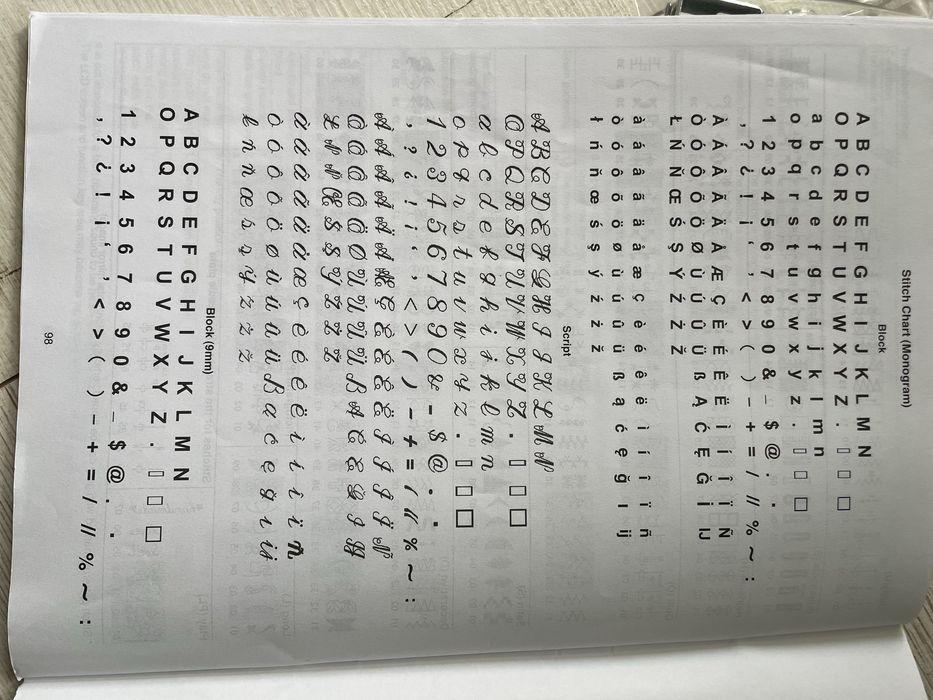 Stitch Chart (Monogram)
Block
A B C D E F G H I J K L M N
O P Q R S T U V W X Y Z . ▯ □ □
a b c d e f g h i j k l m n
o p q r s t u v w x y z . ▯ □ □
1 2 3 4 5 6 7 8 9 0 & _ $ @ . .
, ? ¿ ! ¡ ‘ , < > ( ) – + = / // % ~ :
À Á Â Ã Ä Å Æ Ç È É Ê Ë Ì Í Î Ï Ñ
Ò Ó Ô Õ Ö Ø Ù Ú Û Ü ß Ą Ć Ę Ğ İ IJ
Ł Ń Ň Œ Ś Ş Ý Ź Ż Ž
à á â ã ä å æ ç è é ê ë ì í î ï ñ
ò ó ô õ ö ø ù ú û ü ß ą ć ę ğ ı ij
ł ń ň œ ś ş ý ź ż ž
Script
A B C D E F G H I J K L M N
O P Q R S T U V W X Y Z . ▯ □ □
a b c d e f g h i j k l m n
o p q r s t u v w x y z . ▯ □ □
1 2 3 4 5 6 7 8 9 0 & - $ @ . .
, ? ¿ ! ¡ ‘ , < > ( ) – + = / // % ~ :
À Á Â Ã Ä Å Æ Ç È É Ê Ë Ì Í Î Ï Ñ
Ò Ó Ô Õ Ö Ø Ù Ú Û Ü ß Ą Ć Ę Ğ İ IJ
Ł Ń Ň Œ Ś Ş Ý Ź Ż Ž
à á â ã ä å æ ç è é ê ë ì í î ï ñ
ò ó ô õ ö ø ù ú û ü ß ą ć ę ğ ı ij
ł ń ň œ ś ş ý ź ż ž
Block (9mm)
A B C D E F G H I J K L M N
O P Q R S T U V W X Y Z . ▯ □ □
1 2 3 4 5 6 7 8 9 0 & _ $ @ . .
, ? ¿ ! ¡ ‘ , < > ( ) – + = / // % ~ :
98